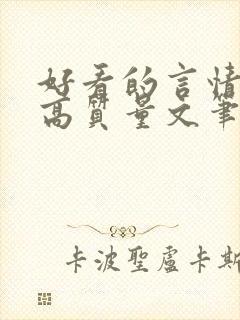 好看的言情
高質量文筆
卡波聖盧卡斯